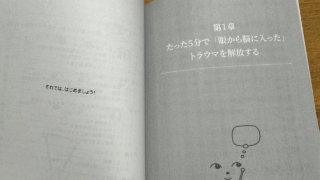 それでは、はじめましょう!
第1章
たった5分で「眼から脳に入った」
トラウマを解放する